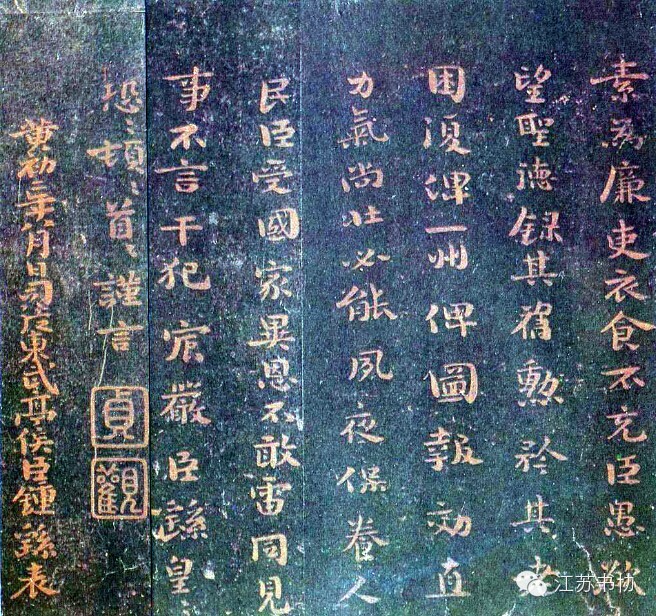 素為廉吏衣食不充臣愚欲
望聖德錄其舊勳矜其老
困復俾一州俾圖報効直
力氣尚壯必能夙夜保養人
民臣受國家異恩不敢雷同見
事不言干犯宸嚴臣繇皇〻
恐〻頓〻首〻謹言
貞觀
黃初二年八月日司徒東武亭侯臣鍾繇表
江苏书协